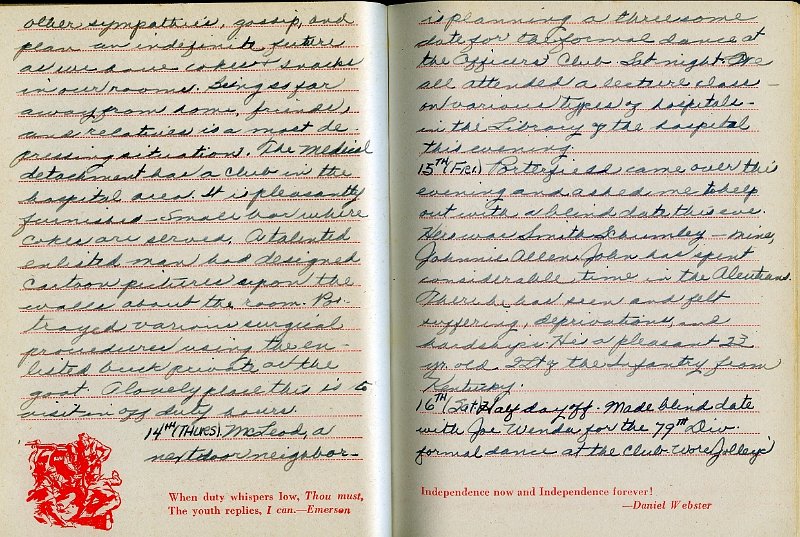 other sympathies, gossip, and
plan an indefinite future
as we have cokes & snacks
in our rooms. Being so far
away from home, friends,
and relatives is a most de-
pressing situation. The Medical
detachment has a club in the
hospital area. It is pleasantly
furnished - small bar where
cokes are served. A talented
enlisted man had designed
cartoon pictures upon the
walls about the room. Por-
trayed various surgical
procedures using the en-
listed buck private as the
goat. A lovely place this is to
visit on off duty hours.
14TH (THURS). McLeod, a
next door neighbor-
When duty whispers low, Thou must,
The youth replies, I can.—Emerson
is planning a threesome
date for the formal dance at
the Officers' Club. Sat night. We
all attended a lecture class -
on various types of hospitals -
in the Library of the hospital
this evening.
15TH (FRI.) Porterfield came over this
evening and asked me to help
out with a blind date this eve.
Hers was Smith - mine,
Johnnie Allen. John has spent
considerable time in the Aleutians.
There he has seen and felt
suffering, deprivations, and
hardships. He's a pleasant 23
yr. old Lt. of the Infantry from
Kentucky.
16TH (Sat.) Half day off. Made blind date
with Joe for the 79TH Div.
formal dance at the Club. Wore Jolley's
Independence now and Independence forever!
—Daniel Webster